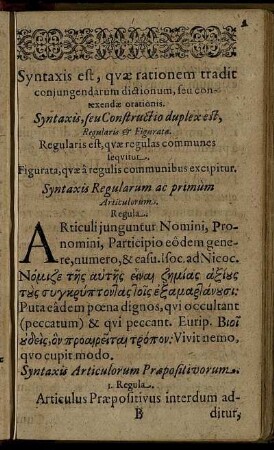 1
Syntaxis est, qvæ rationem tradit
conjungendarum dictionum, seu con-
texendæ orationis.
Syntaxis, seu Constructio duplex est,
Regularis & Figurata.
Regularis est, qvæ regulas communes
seqvitur.
Figurata, qvæ à regulis communibus excipitur.
Syntaxis Regularum ac primùm
Articulorum.
Regula.
ARticuli junguntur Nomini, Pro-
nomini, Participio eôdem gene-
re, numero, & casu. Isoc. ad Nicoc.
Νόμιζε τῆς αὐτῆς εἶναι ζημίας ἀξίους
τοὺς συγκρύπτοντας τοῖς ἐξαμαρτάνουσι:
Puta eâdem pœna dignos, qvi occultant
(peccatum) & qvi peccant. Eurip. Βιοῖ
οὐδεὶς, ὃν προαιρεῖται τρόπον: Vivit nemo,
qvo cupit modo.
Syntaxis Articulorum Præpositivorum.
1. Regula.
Articulus Præpositivus interdum ad-
B ditur,